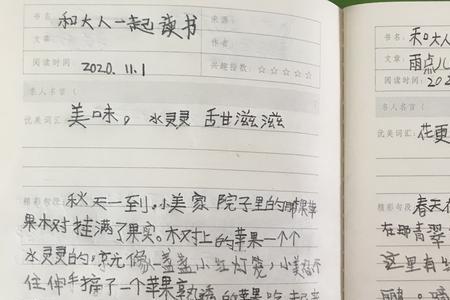 书名： 和大人一起读书
来源：
文章：
作者：
阅读时间： 2020.11.1
兴趣指数：☆☆☆☆☆
名人名言（
优美词汇： 美味， 水灵灵 舌甘滋滋
精彩句段： 秋天一到。小美家 院子里的
果木对 挂满了果实。木对上的苹果一个个
水灵灵的，
盏盏小红灯笼，小美
住伸手摘了一个苹果
的苹果
书名： 和大人
文章： 雨点儿
阅读时间： 202
名人名言（
优美词汇： 花更
精彩句段： 春天
在那 青翠
这里有